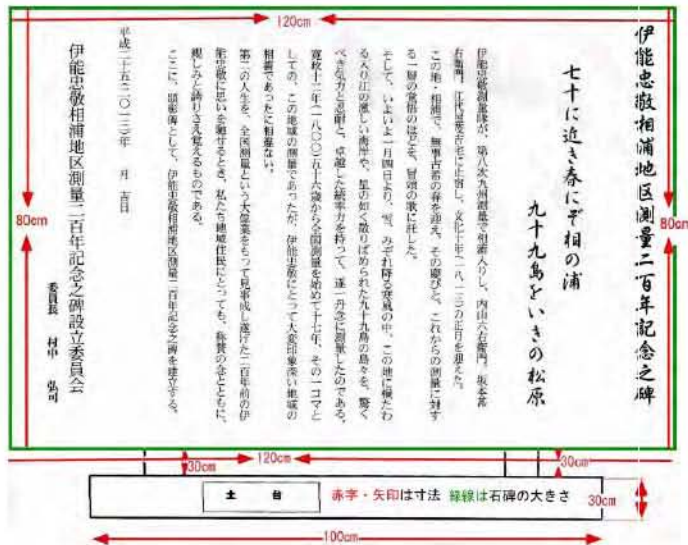 伊能忠敬相浦地区測量二百年記念之碑
七十に近き春にぞ相の浦
九十九島をいきの松原
伊能忠敬測量隊が、第八次九州測量で相浦入りし、内山六右衛門、坂本喜
右衛門、江代屋茂吉宅に止宿し、文化十年(一八一三)の正月を迎えた。
この地・相浦で、無事古希の春を迎え、その慶びと、これからの測量に対す
る一層の覚悟のほどを、冒頭の歌に託した。
そして、いよいよ一月四日より、雪、みぞれ降る寒風の中、この地に横たわ
る入り江の激しい海岸や、星の如く散りばめられた九十九島の島々を、驚く
べき気力と忍耐と、卓越した統率力を持って、逐一丹念に測量したのである。
寛政十二年(一八〇〇)五十六歳から全国測量を始めて十七年、その一コマと
しての、この地域の測量であったが、伊能忠敬にとって大変印象深い地域の
相浦であったに相違ない。
第二の人生を、全国測量という大偉業をもって見事成し遂げた二百年前の伊
能忠敬に思いを馳せるとき、私たち地域住民にとっても、称賛の念とともに、
親しみと誇りさえ覚えるものである。
ここに、顕彰碑として、伊能忠敬相浦地区測量二百年記念之碑を建立する。
平成二十五(二〇一三)年 月 吉日
伊能忠敬相浦地区測量二百年記念之碑設立委員会
委員長 村中 弘司
120cm
80cm
80cm
120cm
30cm
30cm
土 台
赤字・矢印は寸法 緑線は石碑の大きさ
30cm
100cm